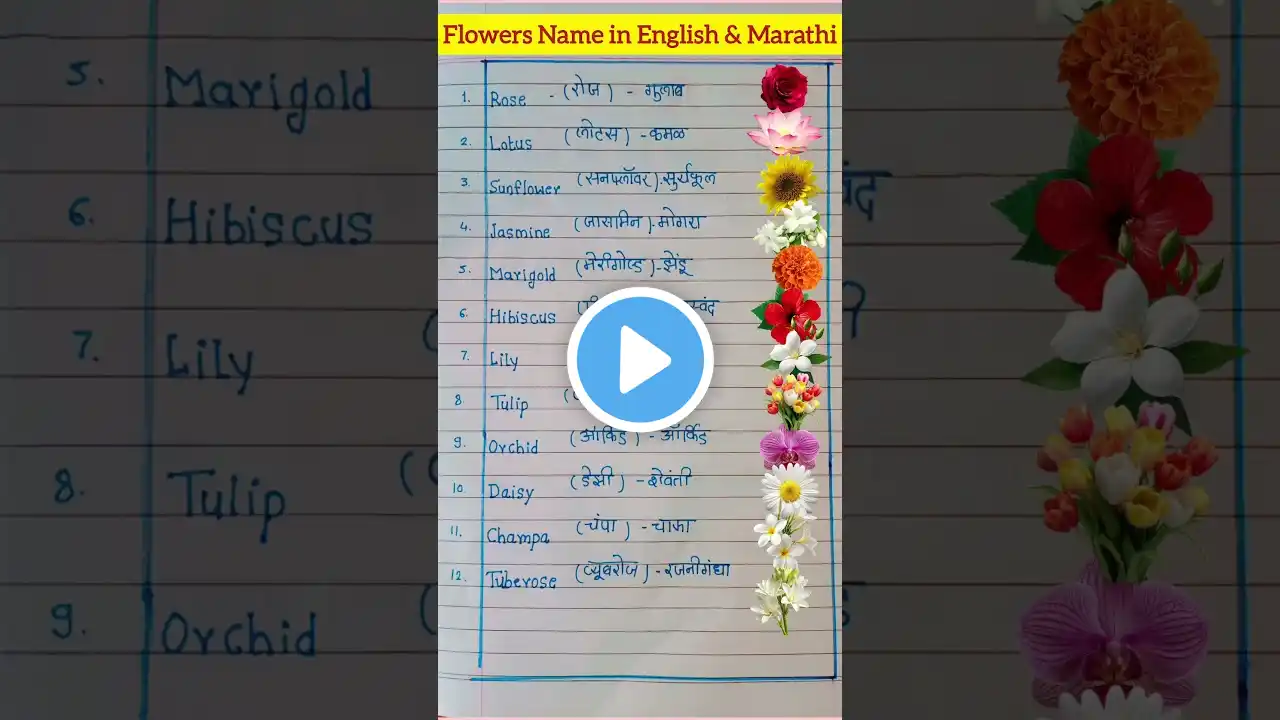 Flowers Name in English & Marathi
1. Rose - (रोज) - गुलाब
2. Lotus (लोटस) - कमळ
3. Sunflower (सनफ्लॉवर) - सुर्यफूल
4. Jasmine (जासमिन) - मोगरा
5. Marigold (मेरीगोल्ड) - झेंडू
6. Hibiscus
7. Lily
8. Tulip
9. Orchid (ऑर्किड) - ऑर्किड
10. Daisy (डेसी) - शेवंती
11. Champa (चंपा) - चाफा
12. Tuberose (ट्यूबरोज) - रजनीगंधा
5. Marigold
6. Hibiscus
7. Lily
8. Tulip
9. Orchid